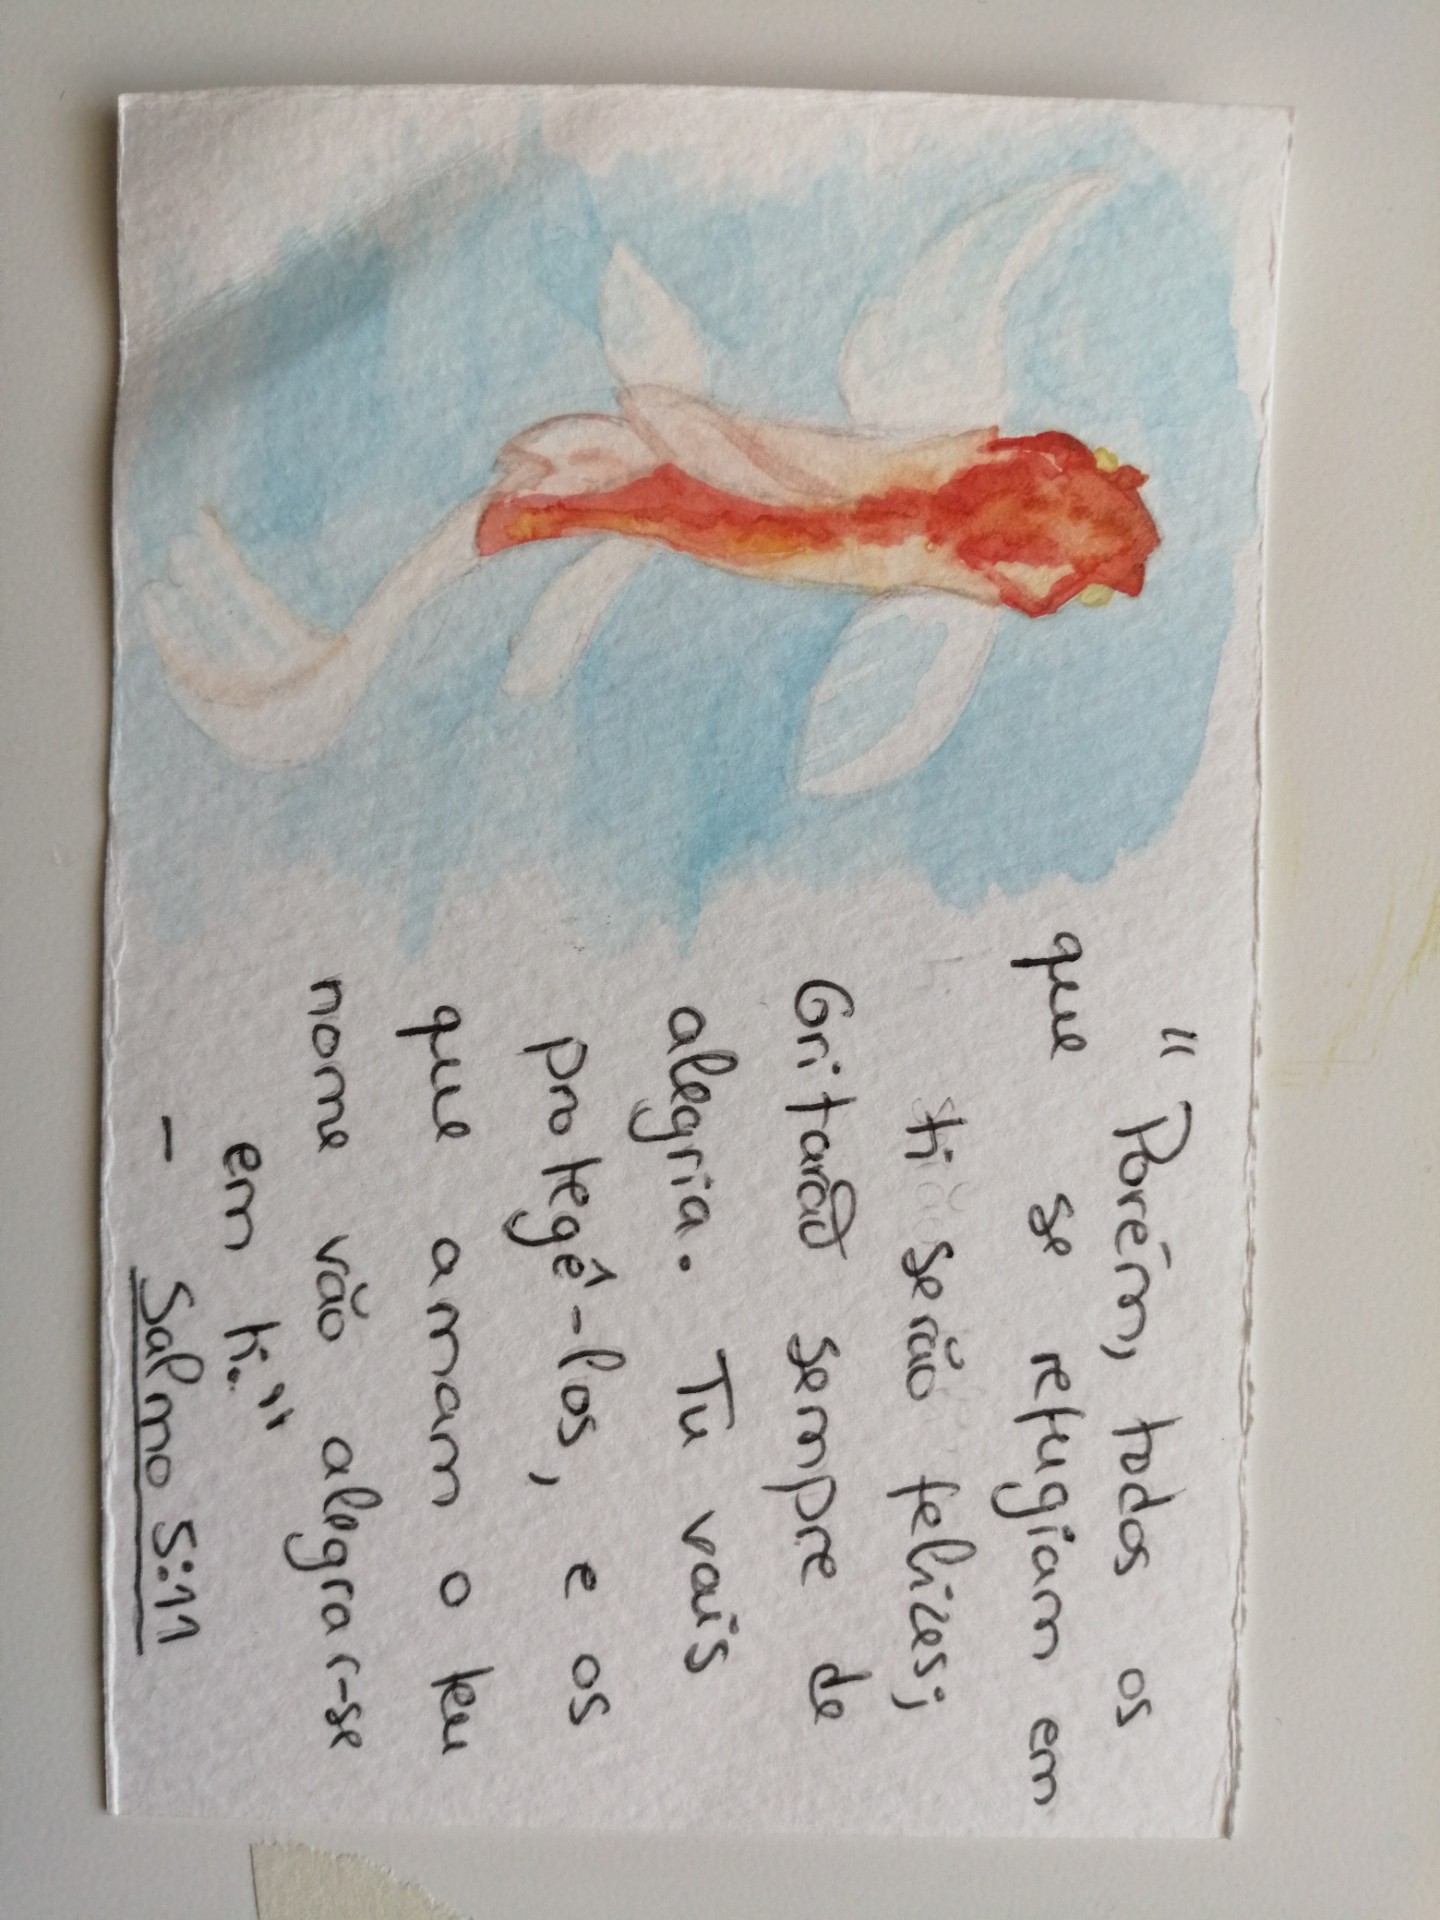 “ Porém, todos os
que se refugiam em
ti serão felizes;
Gritarão sempre de
alegria. Tu vais
protegê-los, e os
que amam o teu
nome vão alegrar-se
em ti.”
- Salmo 5:11